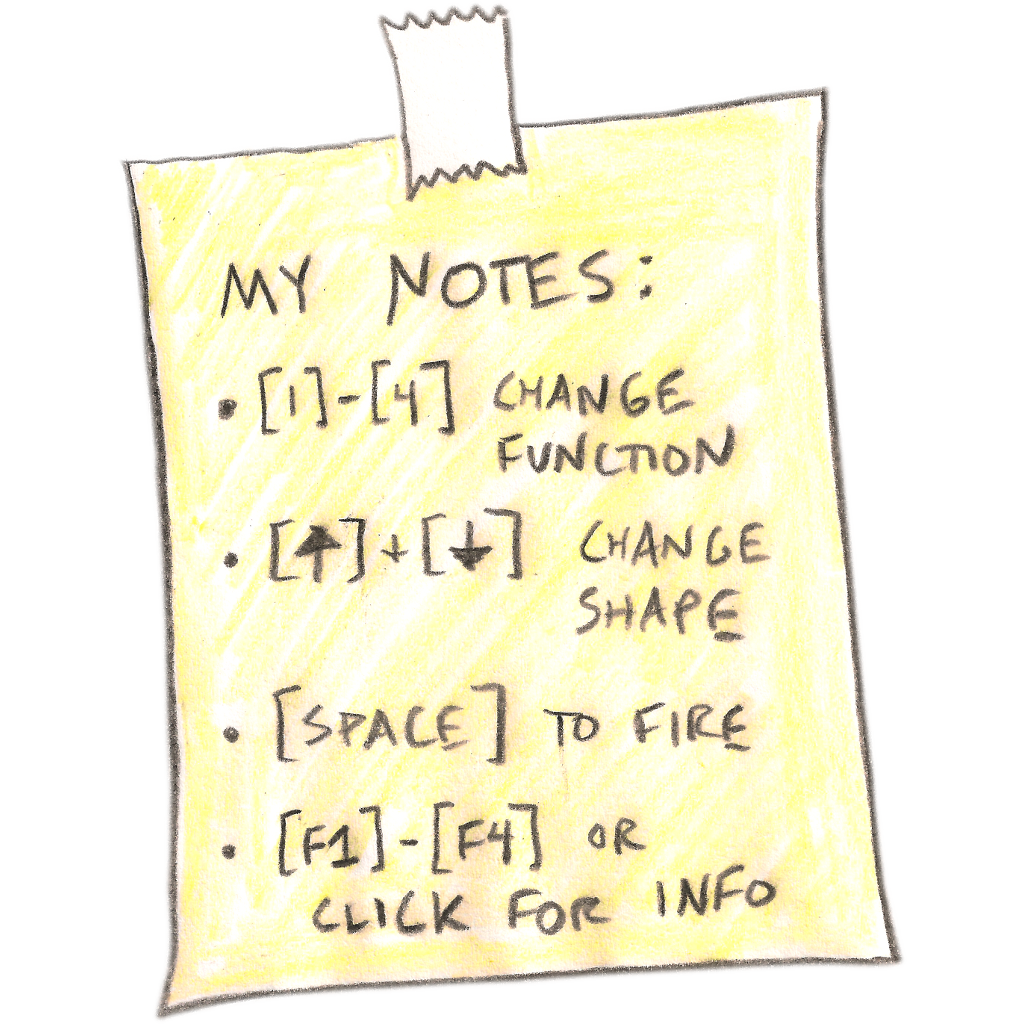 MY NOTES:
• [1]-[4] CHANGE
FUNCTION
• [↑]+[↓] CHANGE
SHAPE
• [SPACE] TO FIRE
• [F1]-[F4] OR
CLICK FOR INFO